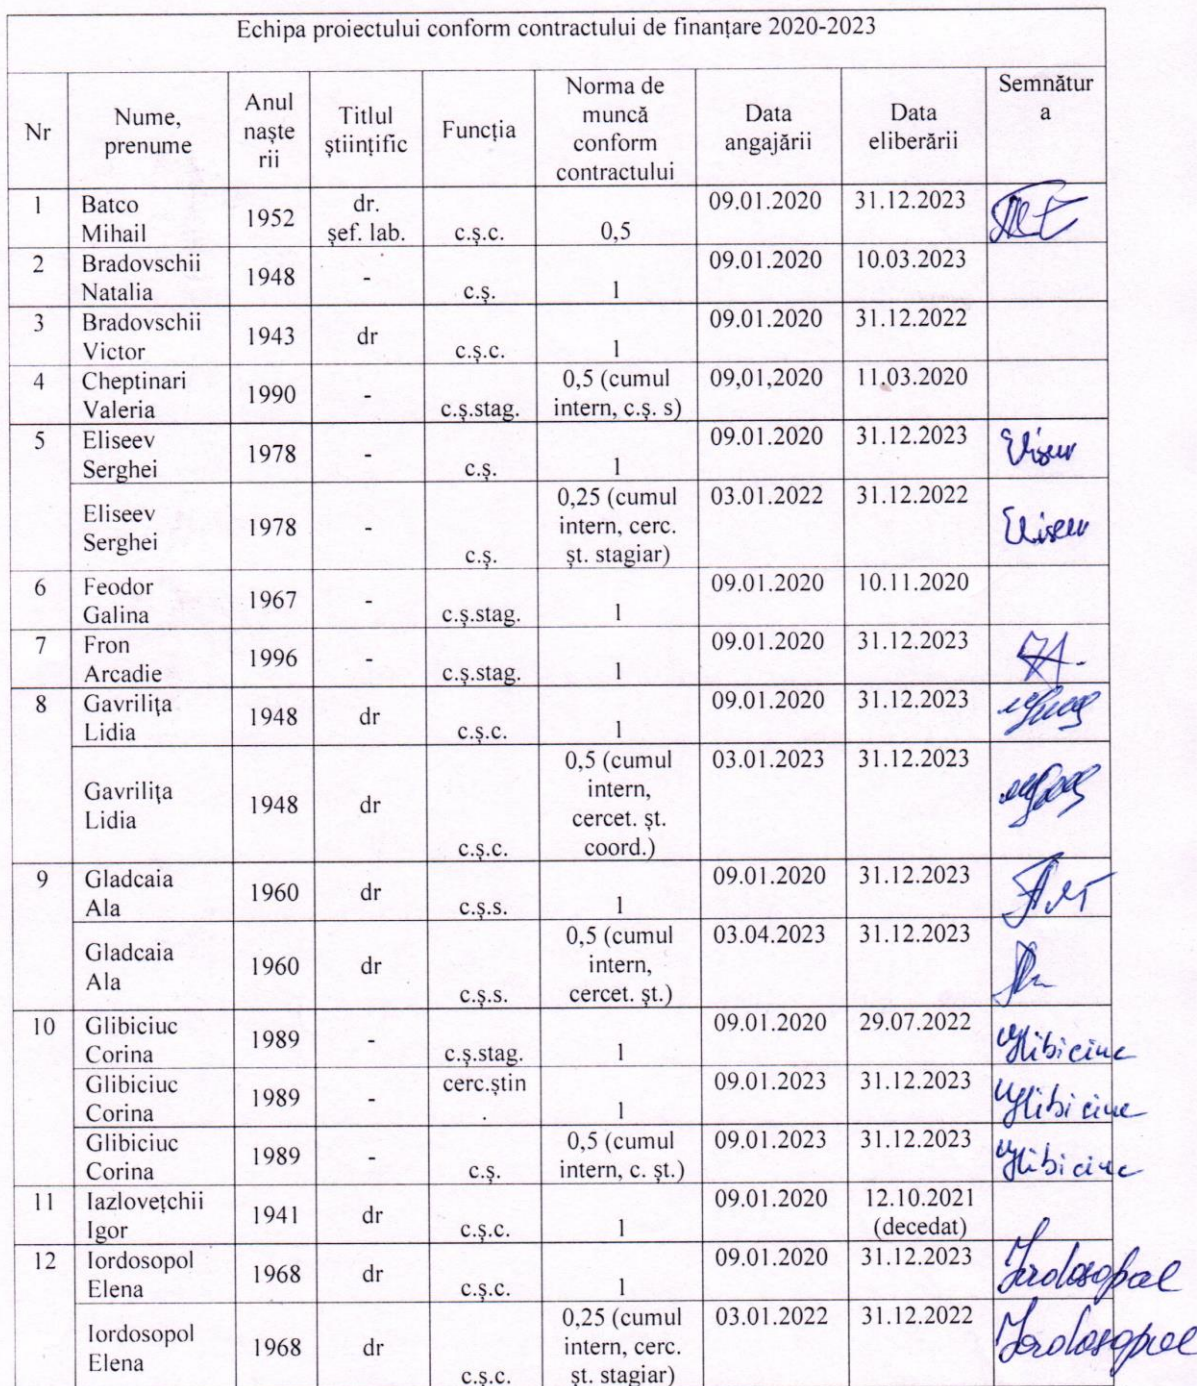 Echipa proiectului conform contractului de finanțare 2020-2023
Nr
Nume,
prenume
Anul
naște
rii
Titlul
științific
Funcția
Norma de
muncă
conform
contractului
Data
angajării
Data
eliberării
Semnătur
a
1
Batco
Mihail
1952
dr.
șef. lab.
c.ș.c.
0,5
09.01.2020
31.12.2023
2
Bradovschii
Natalia
1948
-
c.ș.
1
09.01.2020
10.03.2023
3
Bradovschii
Victor
1943
dr
c.ș.c.
1
09.01.2020
31.12.2022
4
Cheptinari
Valeria
1990
-
c.ș.stag.
0,5 (cumul
intern, c.ș. s)
09,01,2020
11.03.2020
5
Eliseev
Serghei
1978
-
c.ș.
1
09.01.2020
31.12.2023
Eliseev
Eliseev
Serghei
1978
-
c.ș.
0,25 (cumul
intern, cerc.
șt. stagiar)
03.01.2022
31.12.2022
Eliseev
6
Feodor
Galina
1967
-
c.ș.stag.
1
09.01.2020
10.11.2020
7
Fron
Arcadie
1996
-
c.ș.stag.
1
09.01.2020
31.12.2023
8
Gavrilița
Lidia
1948
dr
c.ș.c.
1
09.01.2020
31.12.2023
Gavrilița
Lidia
1948
dr
c.ș.c.
0,5 (cumul
intern,
cercet. șt.
coord.)
03.01.2023
31.12.2023
9
Gladcaia
Ala
1960
dr
c.ș.s.
1
09.01.2020
31.12.2023
Gladcaia
Ala
1960
dr
c.ș.s.
0,5 (cumul
intern,
cercet. șt.)
03.04.2023
31.12.2023
10
Glibiciuc
Corina
1989
-
c.ș.stag.
1
09.01.2020
29.07.2022
Glibiciuc
Glibiciuc
Corina
1989
-
cerc.știn
.
1
09.01.2023
31.12.2023
Glibiciuc
Glibiciuc
Corina
1989
-
c.ș.
0,5 (cumul
intern, c. șt.)
09.01.2023
31.12.2023
Glibiciuc
11
Iazlovețchii
Igor
1941
dr
c.ș.c.
1
09.01.2020
12.10.2021
(decedat)
12
Iordosopol
Elena
1968
dr
c.ș.c.
1
09.01.2020
31.12.2023
Iordosopol
Iordosopol
Elena
1968
dr
c.ș.c.
0,25 (cumul
intern, cerc.
șt. stagiar)
03.01.2022
31.12.2022
Iordosopol